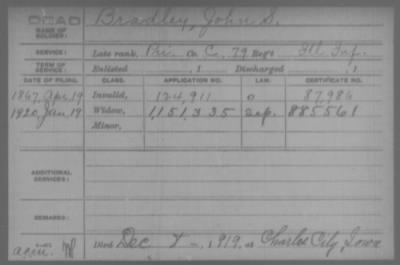 DEAD
NAME OF SOLDIER: Bradley, John S.
SERVICE: Late rank, Pri Co. C, 79 Reg't Ill. Inf.
TERM OF SERVICE: Enlisted , 1 Discharged , 1
DATE OF FILING. CLASS. APPLICATION NO. LAW. CERTIFICATE NO.
1867, Apr. 19 Invalid, 124,911 87,986
1920, Jan. 19 Widow, 1,151,335 885561
Minor,
ADDITIONAL SERVICES:
REMARKS:
Died Dec , 1919, at Charles City, Iowa